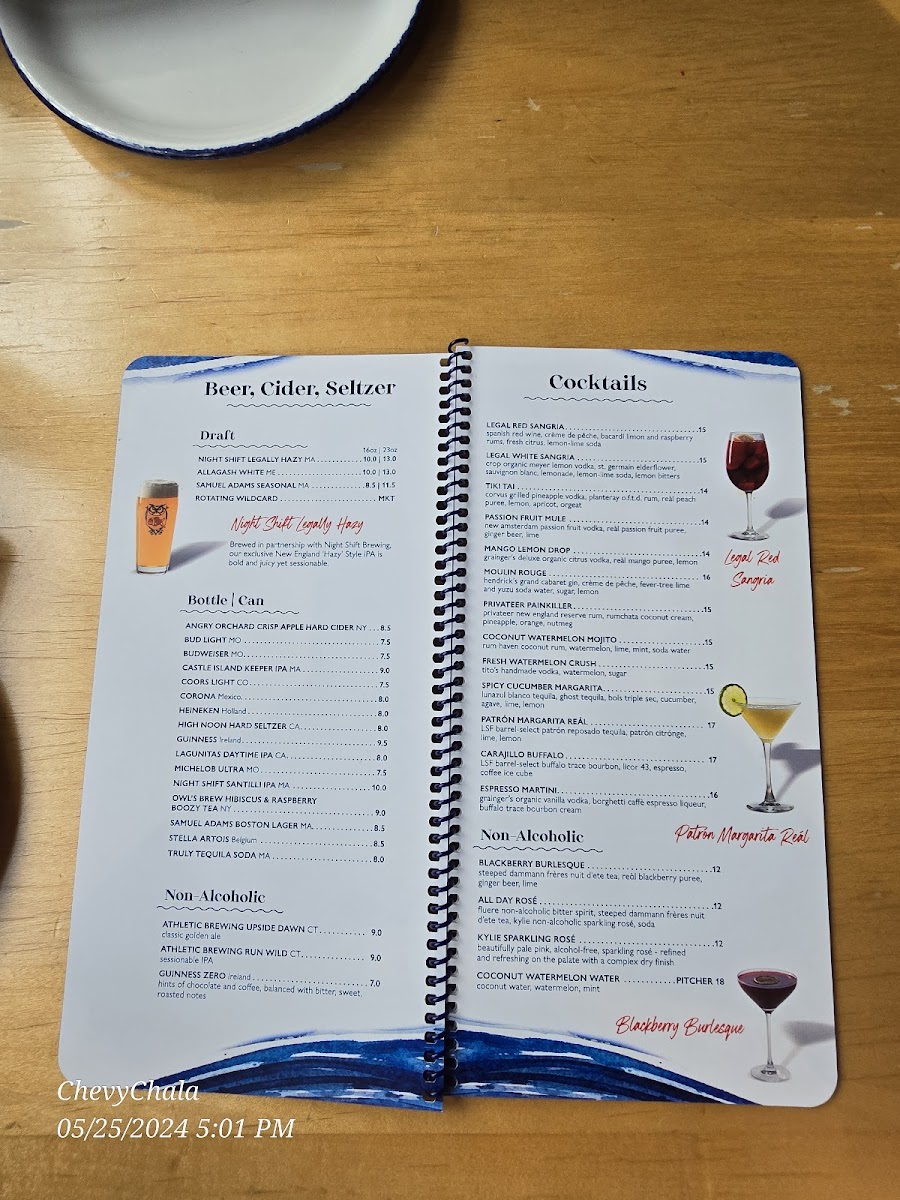 Beer, Cider, Seltzer
Draft
16oz | 23oz
NIGHT SHIFT LEGALLY HAZY MA 10.0 | 13.0
ALLAGASH WHITE ME 10.0 | 13.0
SAMUEL ADAMS SEASONAL MA 8.5 | 11.5
ROTATING WILDCARD MKT
Night Shift Legally Hazy
Brewed in partnership with Night Shift Brewing,
our exclusive New England 'Hazy' Style IPA is
bold and juicy yet sessionable.
Bottle | Can
ANGRY ORCHARD CRISP APPLE HARD CIDER NY 8.5
BUD LIGHT MO 7.5
BUDWEISER MO 7.5
CASTLE ISLAND KEEPER IPA MA 9.0
COORS LIGHT CO 7.5
CORONA Mexico 8.0
HEINEKEN Holland 8.0
HIGH NOON HARD SELTZER CA 8.0
GUINNESS Ireland 9.5
LAGUNITAS DAYTIME IPA CA 8.0
MICHELOB ULTRA MO 7.5
NIGHT SHIFT SANTILLI IPA MA 10.0
OWL'S BREW HIBISCUS & RASPBERRY
BOOZY TEA NY 9.0
SAMUEL ADAMS BOSTON LAGER MA 8.5
STELLA ARTOIS Belgium 8.5
TRULY TEQUILA SODA MA 8.0
Non-Alcoholic
ATHLETIC BREWING UPSIDE DAWN CT 9.0
classic golden ale
ATHLETIC BREWING RUN WILD CT 9.0
sessionable IPA
GUINNESS ZERO Ireland 7.0
hints of chocolate and coffee, balanced with bitter, sweet,
roasted notes
Cocktails
LEGAL RED SANGRIA 15
spanish red wine, crème de pêche, bacardi limon and raspberry
rums, fresh citrus, lemon-lime soda
LEGAL WHITE SANGRIA 15
crop organic meyer lemon vodka, st. germain elderflower,
sauvignon blanc, lemonade, lemon-lime soda, lemon bitters
TIKI TAI 14
corvus grilled pineapple vodka, planteray o.f.t.d. rum, reàl peach
puree, lemon, apricot, orgeat
PASSION FRUIT MULE 14
new amsterdam passion fruit vodka, reàl passion fruit puree,
ginger beer, lime
MANGO LEMON DROP 14
grainger's deluxe organic citrus vodka, reàl mango puree, lemon
MOULIN ROUGE 16
hendrick's grand cabaret gin, crème de pêche, fever-tree lime
and yuzu soda water, sugar, lemon
PRIVATEER PAINKILLER 15
privateer new england reserve rum, rumchata coconut cream,
pineapple, orange, nutmeg
COCONUT WATERMELON MOJITO 15
rum haven coconut rum, watermelon, lime, mint, soda water
FRESH WATERMELON CRUSH 15
tito's handmade vodka, watermelon, sugar
SPICY CUCUMBER MARGARITA 15
lunazul blanco tequila, ghost tequila, bols triple sec, cucumber,
agave, lime, lemon
PATRÓN MARGARITA REÁL 17
LSF barrel-select patrón reposado tequila, patrón citrónge,
lime, lemon
CARAJILLO BUFFALO 17
LSF barrel-select buffalo trace bourbon, licor 43, espresso,
coffee ice cube
ESPRESSO MARTINI 16
grainger's organic vanilla vodka, borghetti caffè espresso liqueur,
buffalo trace bourbon cream
Legal Red
Sangria
Patrón Margarita Reál
Non-Alcoholic
BLACKBERRY BURLESQUE 12
steeped dammann frères nuit d'ete tea, reàl blackberry puree,
ginger beer, lime
ALL DAY ROSÉ 12
fluere non-alcoholic bitter spirit, steeped dammann frères nuit
d'ete tea, kylie non-alcoholic sparkling rosé, soda
KYLIE SPARKLING ROSÉ 12
beautifully pale pink, alcohol-free, sparkling rosé - refined
and refreshing on the palate with a complex dry finish
COCONUT WATERMELON WATER PITCHER 18
coconut water, watermelon, mint
Blackberry Burlesque
ChevyChala
05/25/2024 5:01 PM